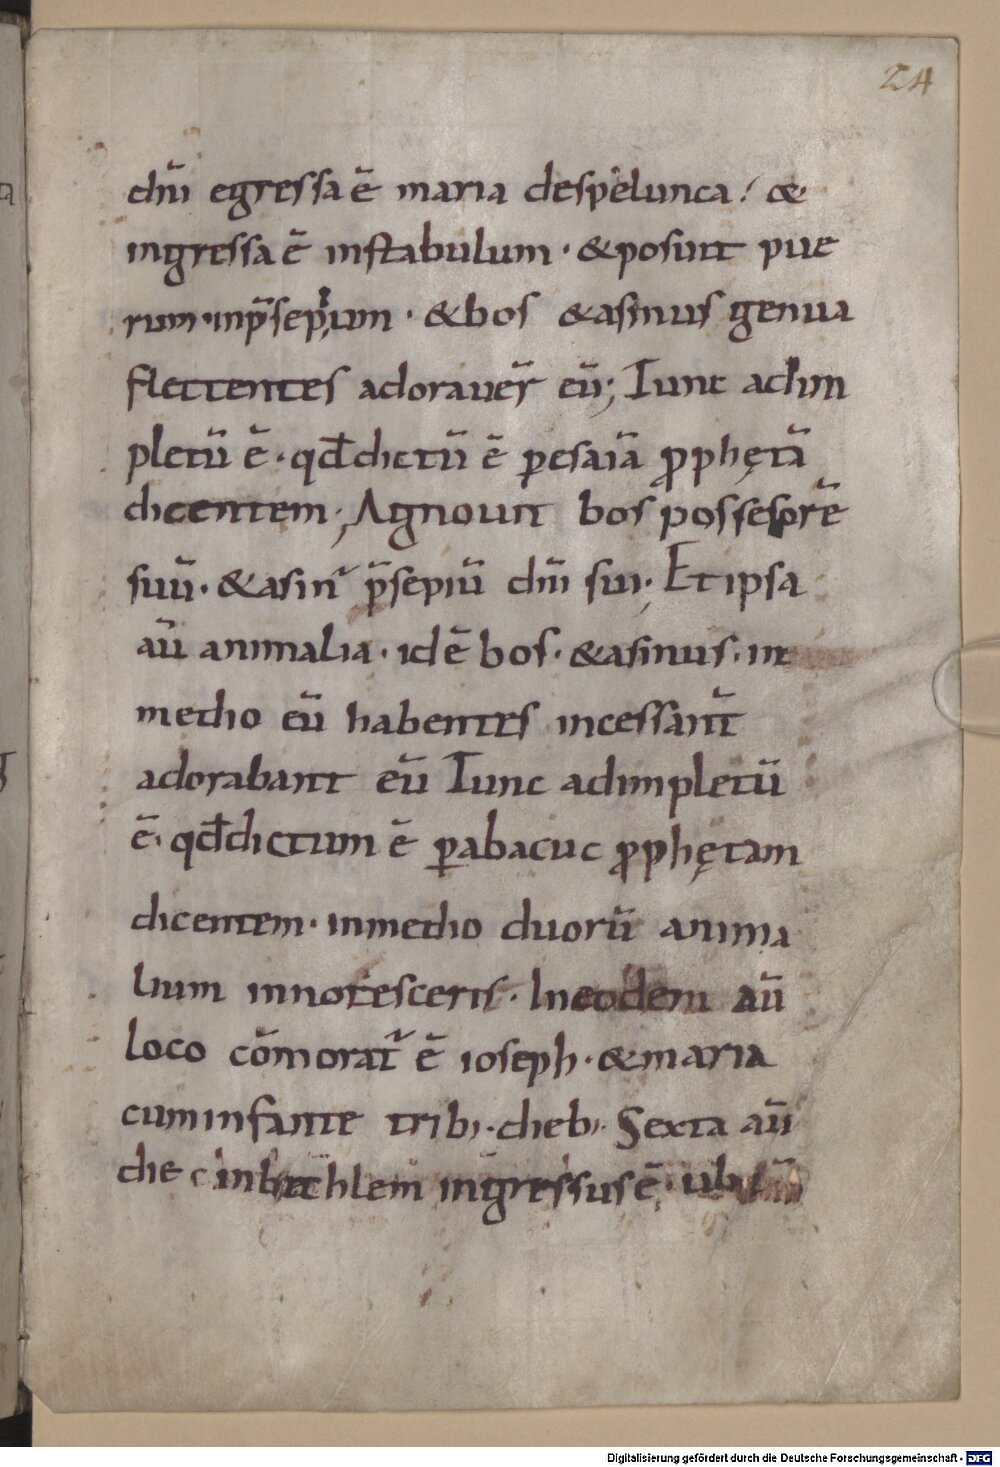 24
dñi egressa ē maria despelunca ⁊ &
ingressa ē instabulum · & posuit pue
rum · inp̄sepium · & bos & asinus genua
flectentes adoraver̄ eū; Tunc adim
pletū ē · qđ dictū ē p̱esaiā ꝓphętā
dicentem; Agnouit bos possesorē
suū · & asin᷒ p̄sepiū dñi sui; Et ipsa
aū animalia · id ē bos · & asinus · in
medio eū habentes incessant̄
adorabant eū Tunc adimpletū
ē · qđ dictum ē p̱abacuc ꝓphętam
dicentem · inmedio duorū anima
lium innotesceris · Ineodem aū
loco cōmorat᷒ ē ioseph · & maria
cuminfante trib; · dieb; Sexta aū
die inbethlem ingressus ē · ubi
Digitalisierung gefördert durch die Deutsche Forschungsgemeinschaft - DFG